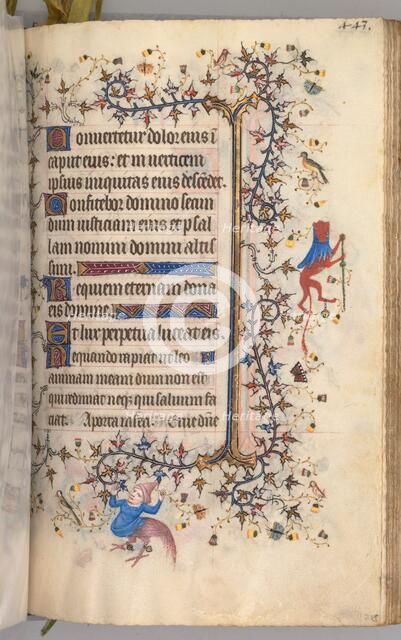 447.
Convertetur dolor eius i
caput eius: et in verticem
ipsius iniquitas eius descēdet.
Confitebor domino secun
dum iusticiam eius et psal
lam nomini domini altis
simi.
Requiem eternam dona
eis domine.
Et lux perpetua luceat eis.
Nequando rapiat ut leo
animam meam dum non est
qui redimat neq; qui salvum fa
ciat. A porta inferi. Erue dñe
Heritage
Heritage
Heritage
Heritage